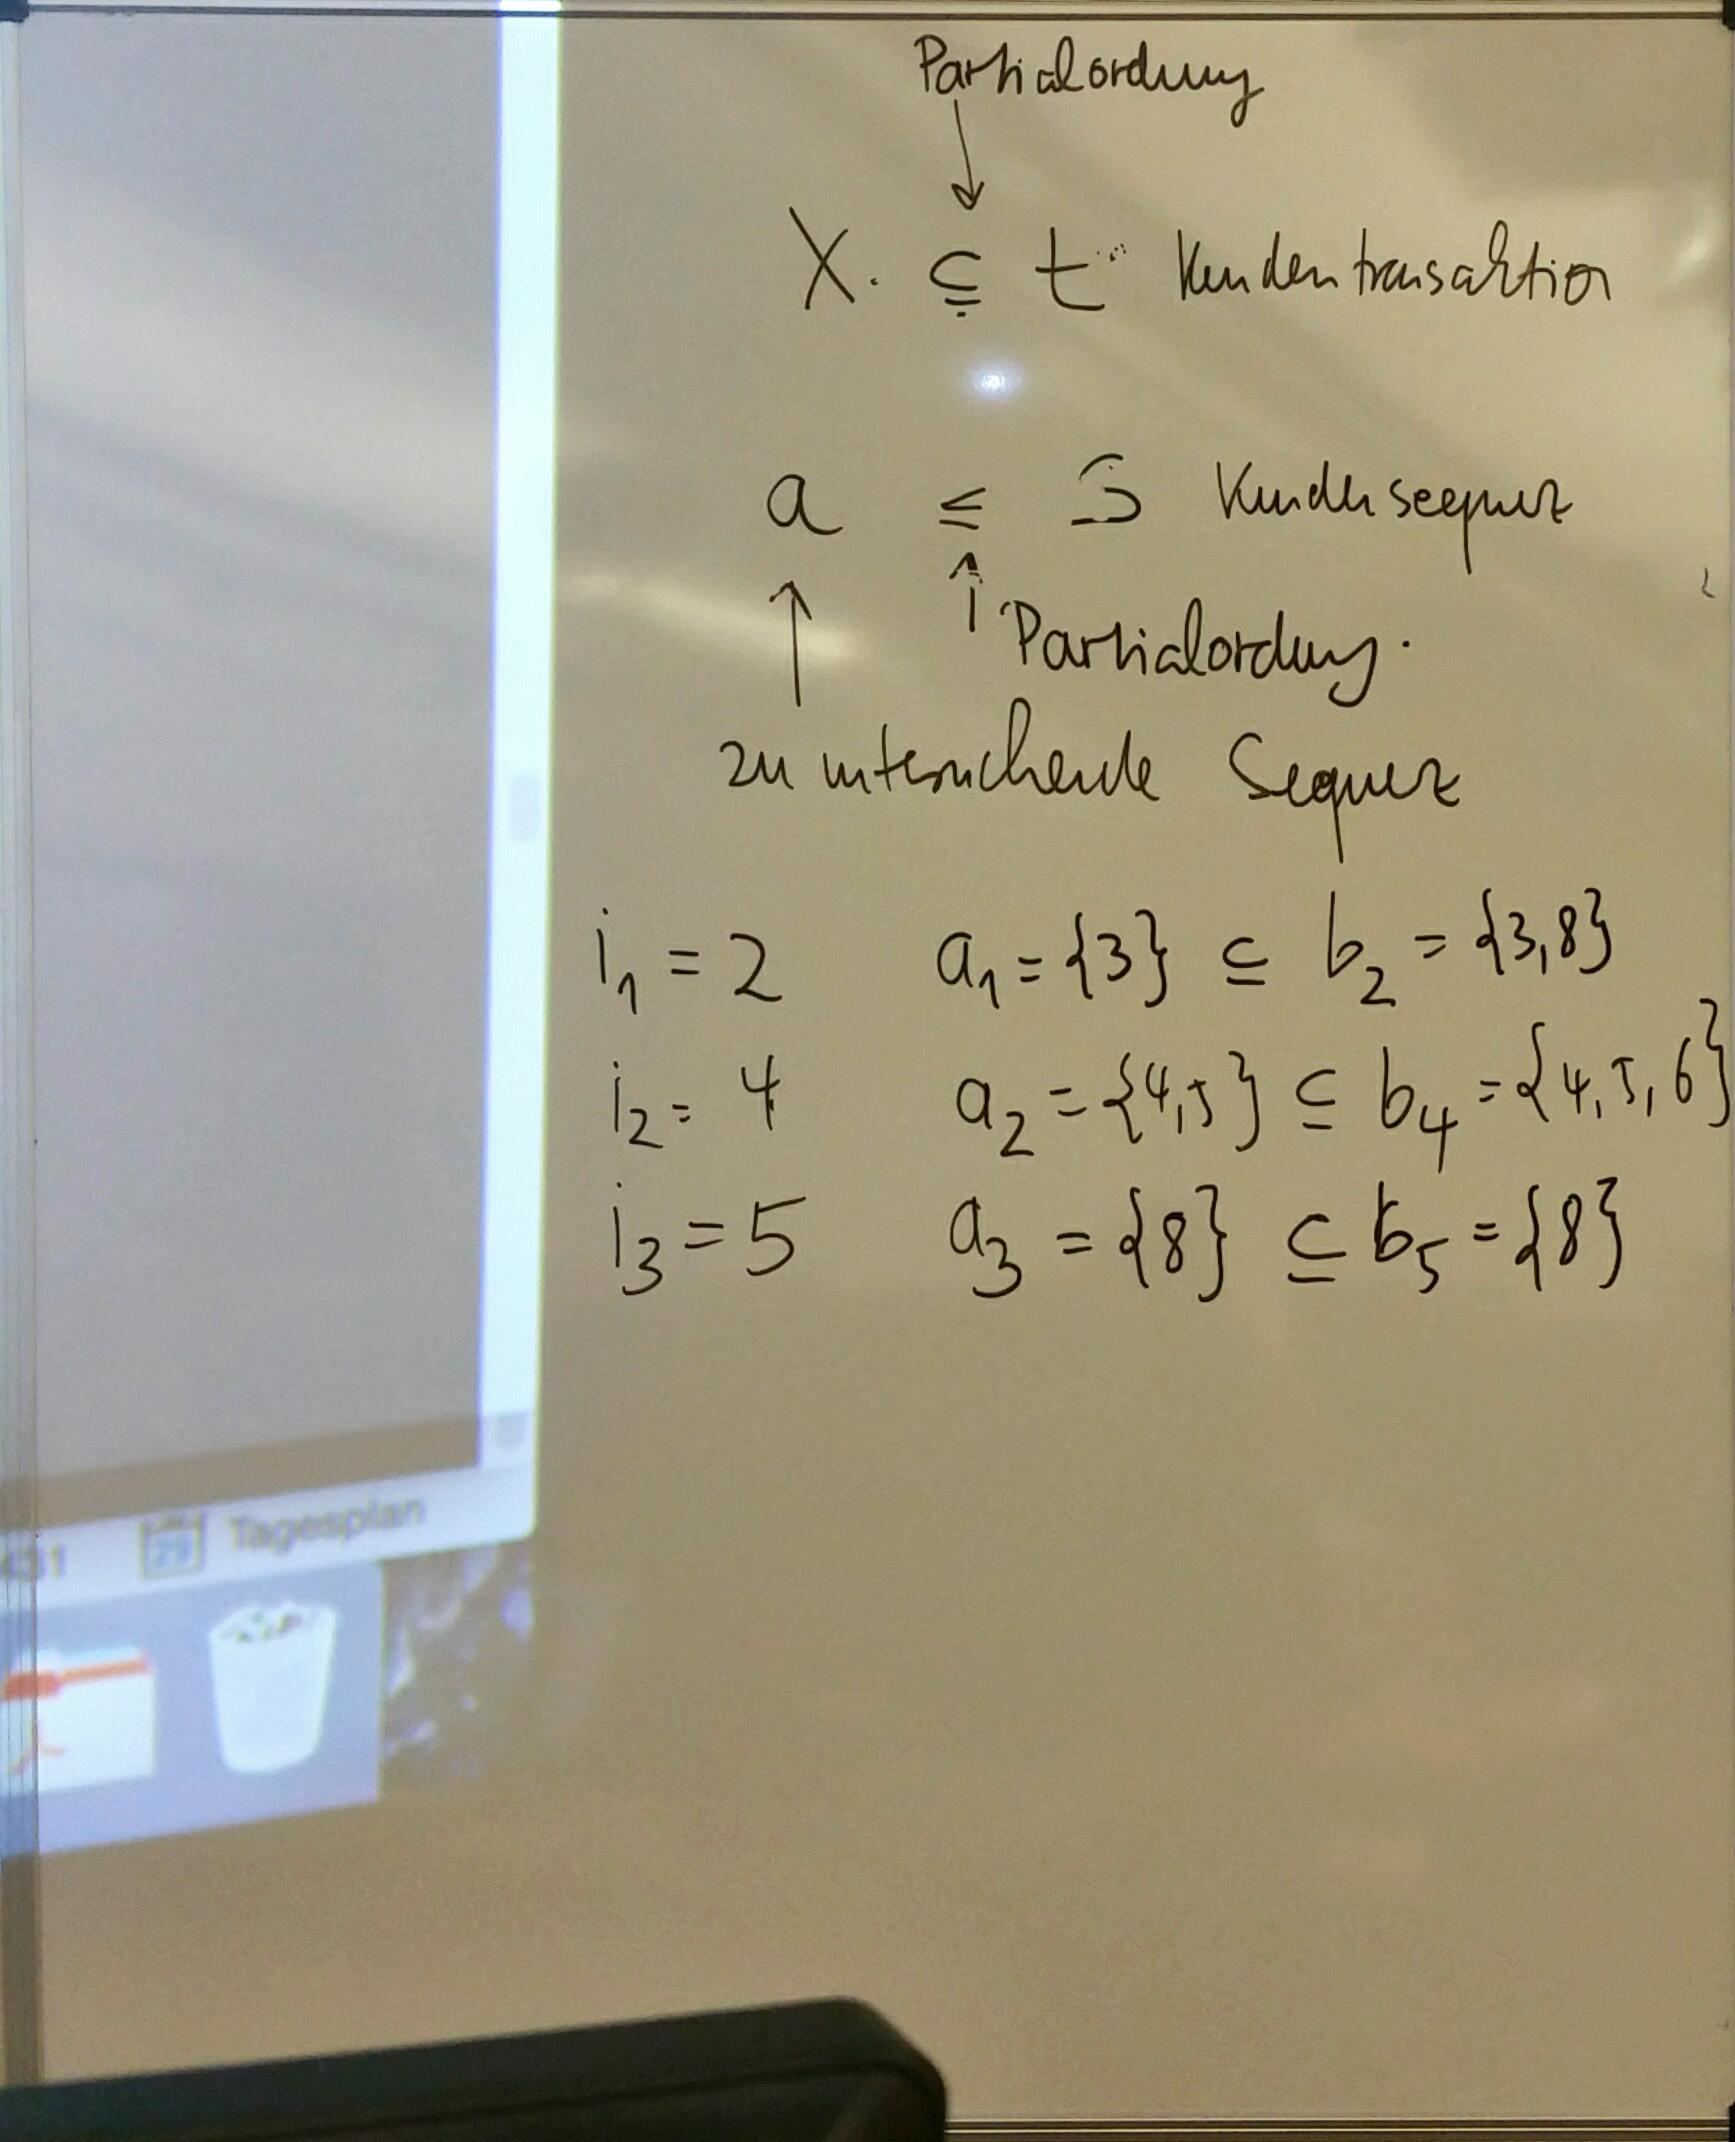 Partialordnung
X ⊆ t Kundentransaktion
a ≤ S Kundensequenz
Partialordnung.
zu untersuchende Sequenz
i₁ = 2 a₁ = {3} ⊆ b₂ = {3,8}
i₂ = 4 a₂ = {4,5} ⊆ b₄ = {4,5,6}
i₃ = 5 a₃ = {8} ⊆ b₅ = {8}
29 Tagesplan